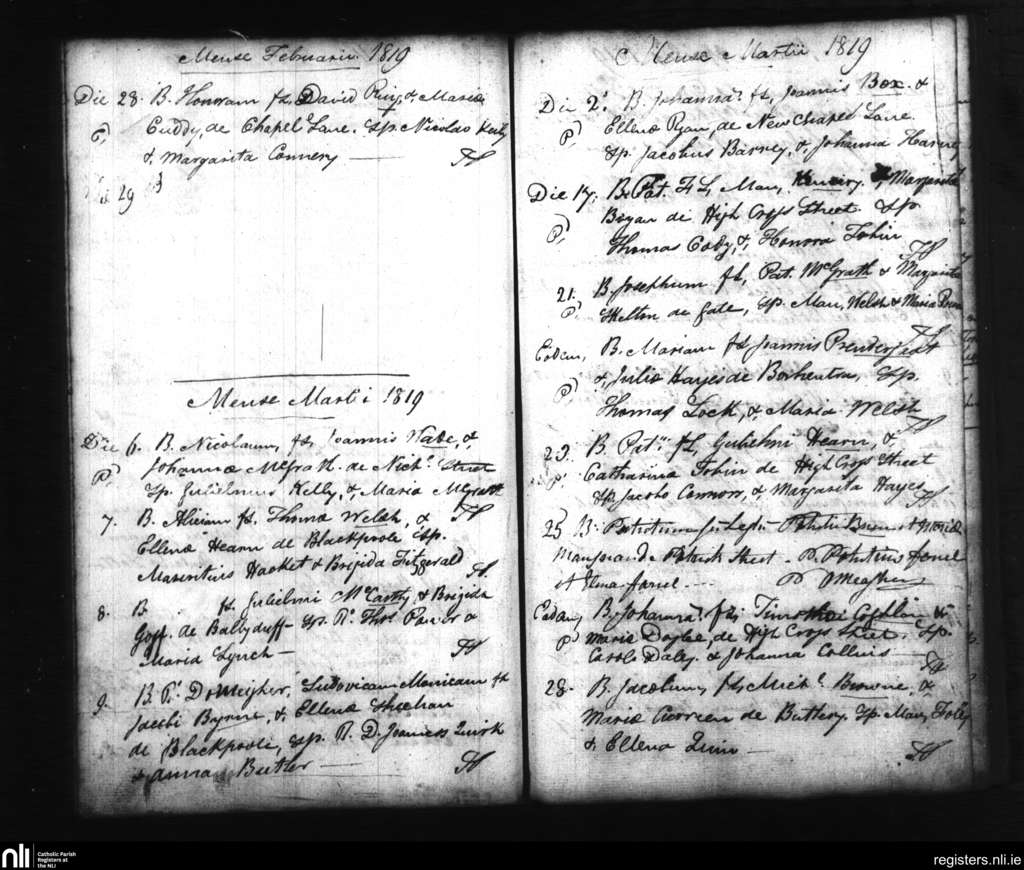 Mense Februarii 1819
Die 28. B. Honoram fs, David & Maria
P, Cuddy, de Chapel Lane. Sp. Nicolao
&, Margarita Connery — H
Die 29
Mense Martii 1819
Die 6. B. Nicolaum, fs, Joannis Wade, &
P, Johannæ McGrath de Nichs. Street
Sp. Gulielmus Kelly, & Maria McGrath
H
7. B. Miriam fs. Thomæ Welsh, &
Ellenæ Hearn de Blackpoole Sp.
Mauritius Hacket & Brigida Fitzgerald
H
8. B. fs. Gulielmi McCarthy & Brigida
Goff. de Ballyduff Sp. Rd. Thos. Power &
Maria Lynch — H
9. B. Rd. D. Meagher, Ludovicam Monicam fs
Jacobi Byrne, & Ellenæ Sheehan
de Blackpoole, Sp. R. D. Joannes Quirk
& Anna Butler — H
Mense Martii 1819
Die 2. B. Johannam fs, Joannis Box. &
P, Ellenæ Ryan, de New Chapel Lane.
Sp. Jacobus Barney, &, Johanna
Die 17. B. Pat. FL, Mau, & Margarita
Bryan de High Crofs Street. Sp
P, Thomas Cody, &, Honora Tobin
H
21. B. Josephum fs, Pat. McGrath & Margarita
P, Skelton de Gate, Sp. Mau, Welsh & Maria
H
Eodem, B. Mariam fs Joannis Prendergast
P, &, Juliæ Hayes de Sp.
Thomas Lock, & Maria Welsh
H
23. B. Patm. FL, Gulielmi Hearn, &
P, Catharinæ Tobin de High Crofs Street
Sp. Jacobo Connors, & Margarita Hayes
H
25 B. Patritium fs Legti Patritii et Maria
de Patrick Street. P. Patritius farrel
et Elena farrel ---- P Meagher
Eodem, B. Johannam fs, Timothei Coghlan &
P Mariæ Doyle, de High Crofs Street. Sp.
Carolo Daley. & Johanna Collins —
H
28. B. Jacobum, fs, Michl. Browne, &
Mariæ de Butlery. Sp. Mau, Foley
& Ellena Quin —
H
nli
Catholic Parish
Registers at
the NLI
registers.nli.ie